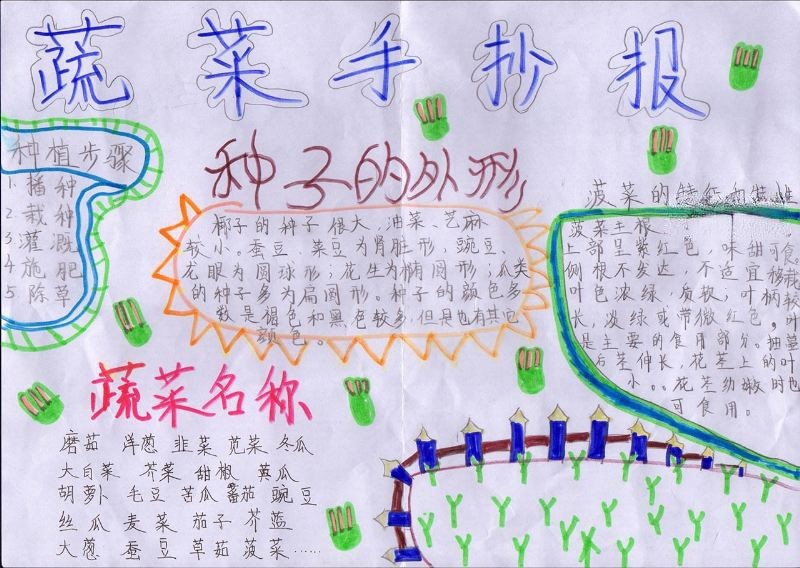 蔬菜手抄报
种植步骤
1. 播种
2. 栽种
3. 灌溉
4. 施肥
5. 除草
种子的外形
椰子的种子很大，油菜、芝麻
较小。蚕豆、菜豆为肾脏形，豌豆、
龙眼为圆球形；花生为椭圆形；瓜类
的种子多为扁圆形。种子的颜色多
数是褐色和黑色较多，但是也有其它
颜色。
菠菜的特征和特性
菠菜主根
上部呈紫红色，味甜可食。
侧根不发达，不适宜移栽
叶色浓绿，质软；叶柄较
长，淡绿或带微红色。叶
是主要的食用部分。抽薹
后茎伸长，花茎上的叶
小。。花茎幼嫩时也
可食用。
蔬菜名称
磨茹 洋葱 韭菜 苋菜 冬瓜
大白菜 芥菜 甜椒 黄瓜
胡萝卜 毛豆 苦瓜 蕃茄 豌豆
丝瓜 麦菜 茄子 芥蓝
大葱 蚕豆 草茹 菠菜……